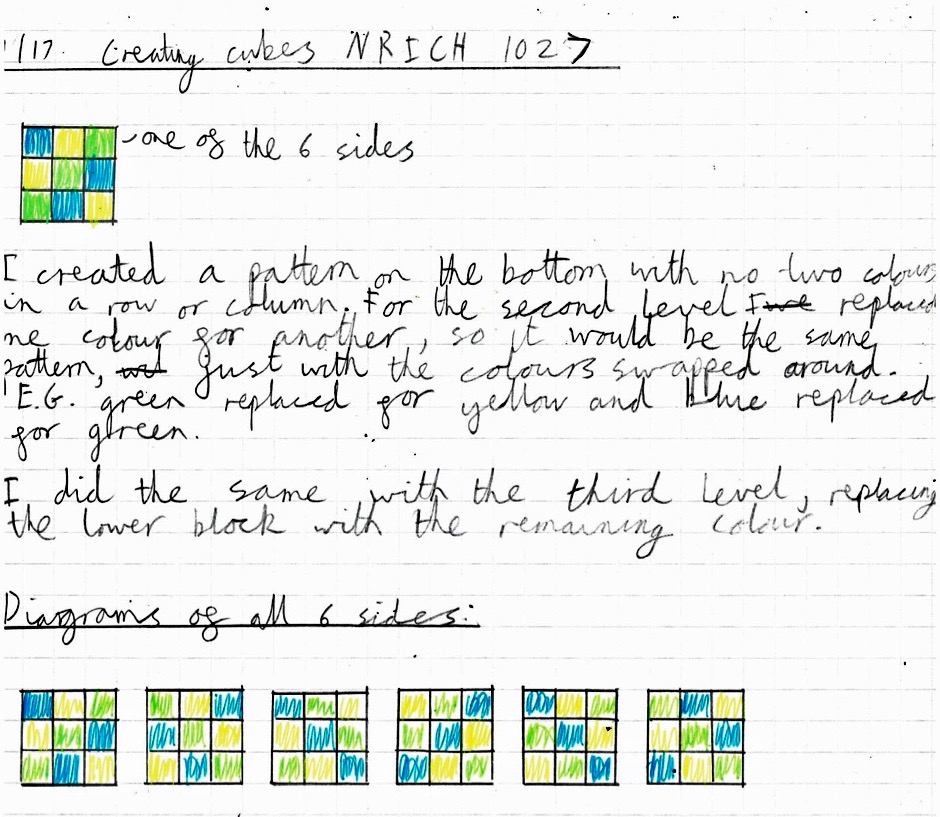 1/17. Creating cubes NRICH 1027
one of the 6 sides
I created a pattern on the bottom with no two colours
in a row or column. For the second level I replaced
ne colour for another, so it would be the same
pattern, just with the colours swapped around.
E.G. green replaced for yellow and blue replaced
for green.
I did the same with the third level, replacing
the lower block with the remaining colour.
Diagrams of all 6 sides: